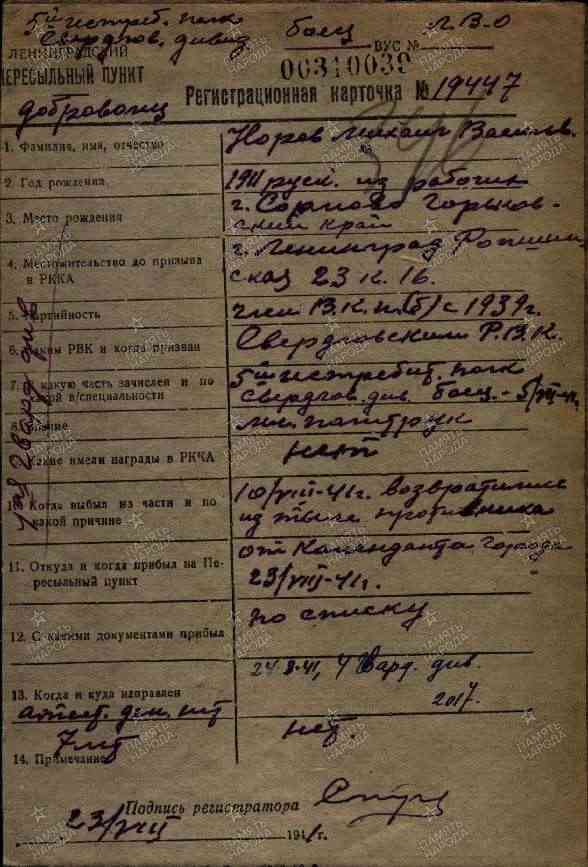 5ый истреб. полк
Свердлов. дивиз боец Л.В.О
ЛЕНИНГРАДСКИЙ ВУС №
ПЕРЕСЫЛЬНЫЙ ПУНКТ 00310039
Регистрационная карточка № 19447
доброволец
1. Фамилия, имя, отчество Норов Михаил Васильев.
2. Год рождения 1911 русск. из рабочих
3. Место рождения г. Сормово Горьков-
ский край
4. Местожительство до призыва в РККА г. Ленинград Ропшин
ская 23 к. 16.
5. Партийность член В.К.П.(б) с 1939г.
6. Каким РВК и когда призван Свердловским Р.В.К.
7. В какую часть зачислен и по какой в/специальности 5ый истребит. полк
Свердлов. див. боец - 5/VII-41г.
8. Звание мл. политрук
9. Какие имели награды в РККА нет
10. Когда выбыл из части и по какой причине 10/VIII-41г. возвратились
из тыла противника
11. Откуда и когда прибыл на Пересыльный пункт от Коменданта города
23/VIII-41г.
12. С какими документами прибыл по списку
13. Когда и куда направлен 24.8.41, 4 Гвард. див.
2017.
14. Примечание нет.
Подпись регистратора
23/VIII 1941 г.
ПАМЯТЬ НАРОДА